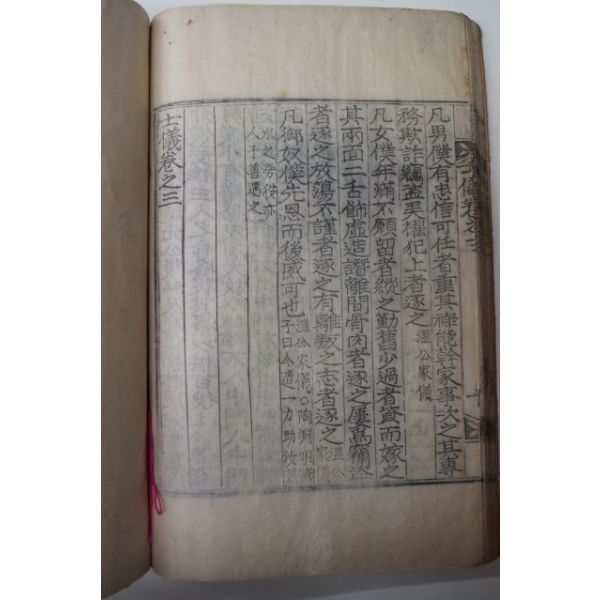 士儀卷之三
凡男僕有忠信可任者重其祿能幹家事次之其專
務欺詐竊盜弄權犯上者逐之溫公家儀
凡女僕年滿不願留者縱之勤舊少過者資而嫁之
其兩面二舌飾虛造讒離間骨肉者逐之屢爲竊盜
者逐之放蕩不謹者逐之有離叛之志者逐之溫公家儀
凡御奴僕先恩而後威可也溫公家儀○陶淵明戒子曰今遣一力助汝薪
水之勞彼亦人子善遇之
士儀卷之三